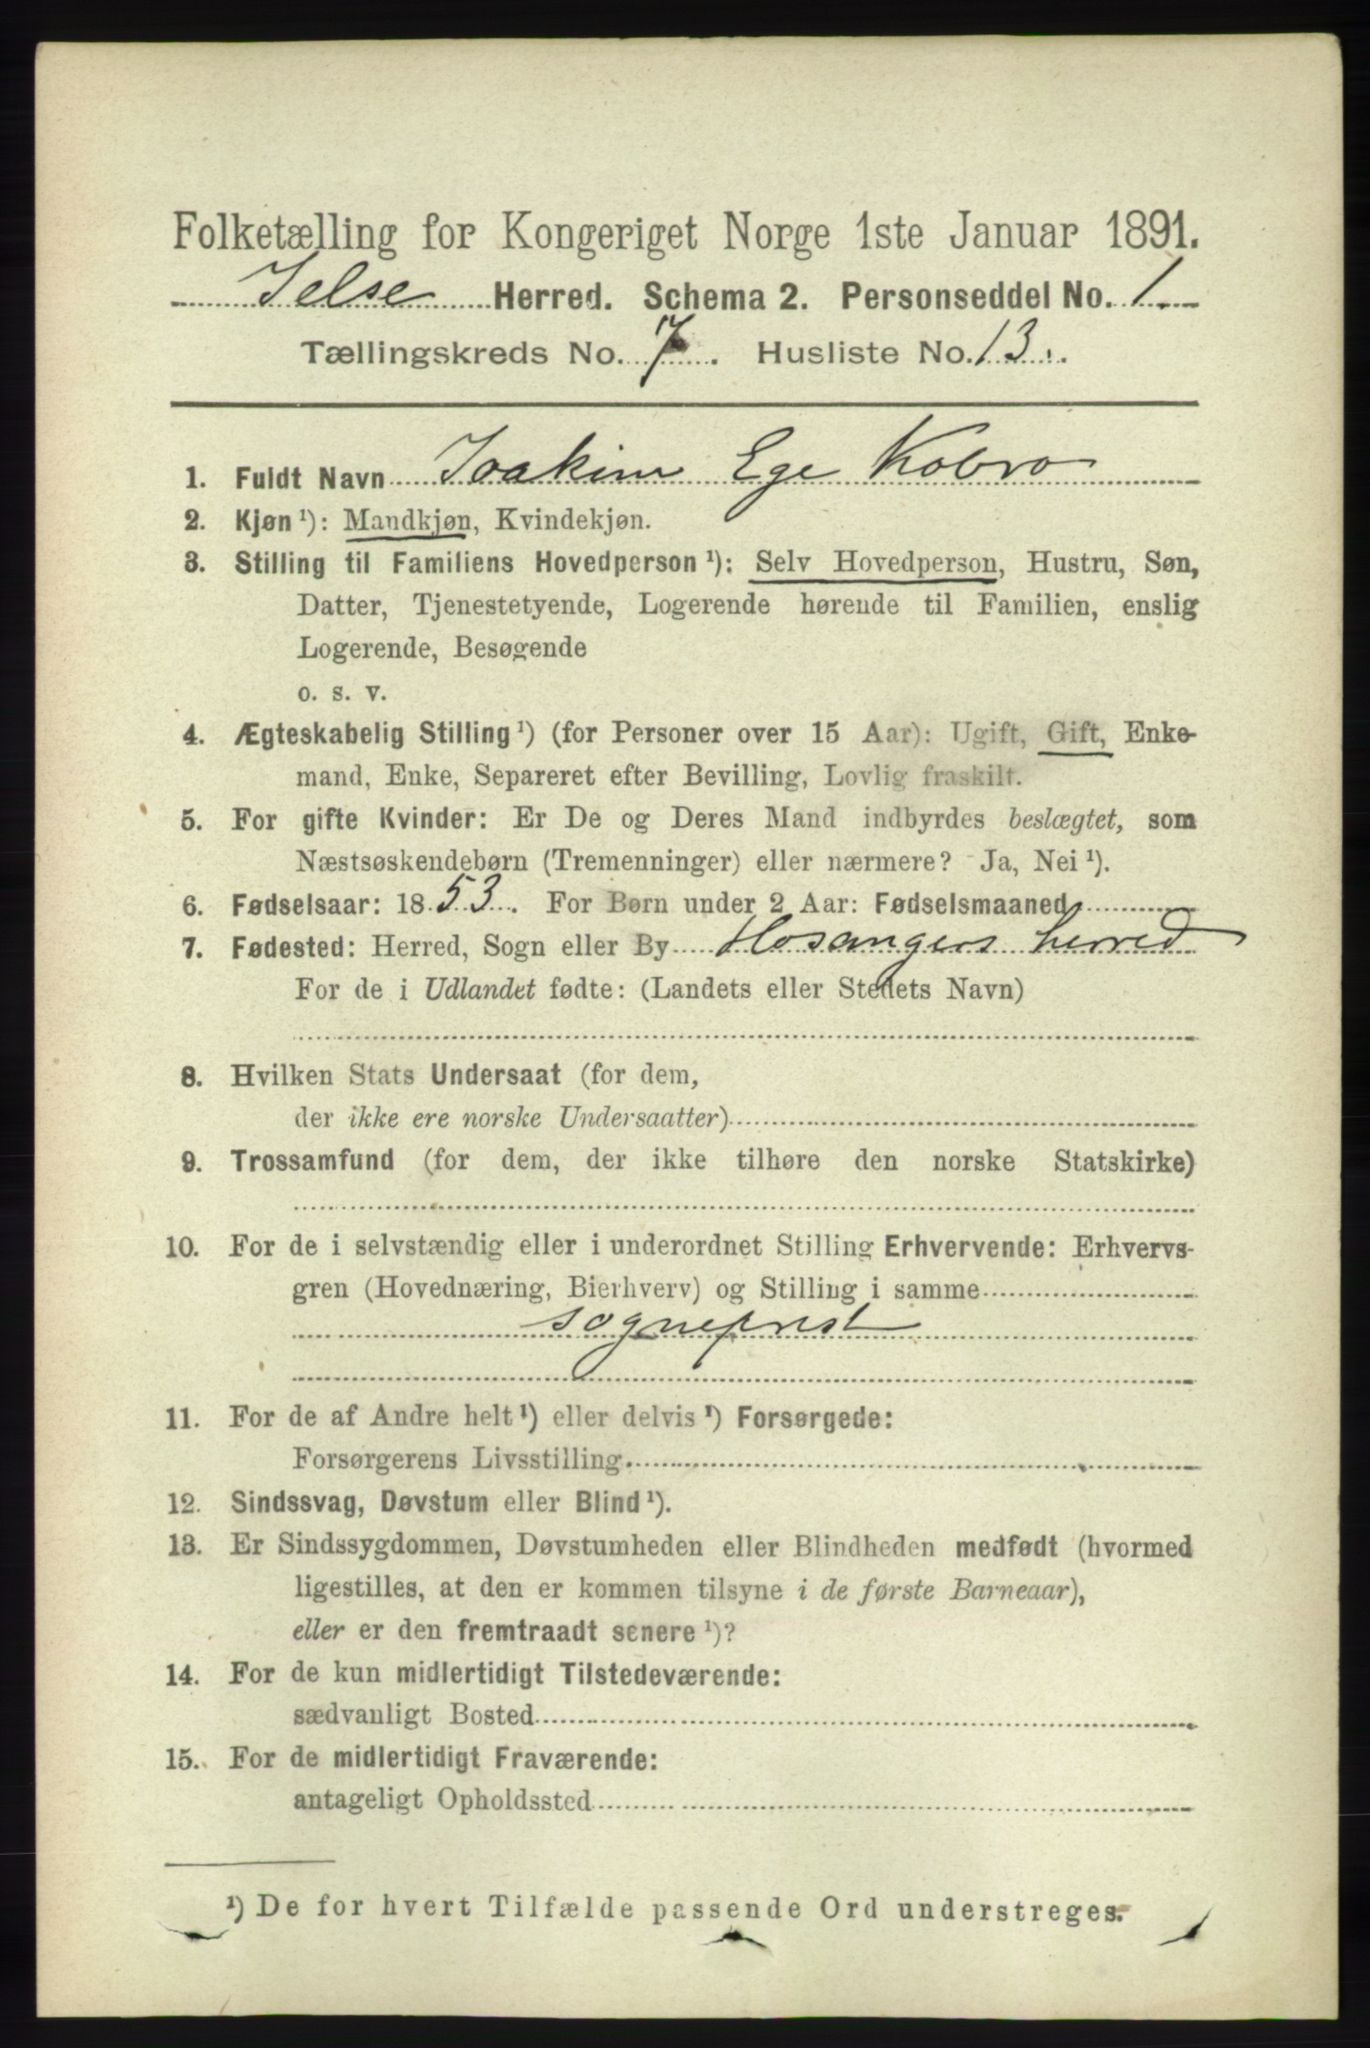 Folketælling for Kongeriget Norge 1ste Januar 1891.
Jelse Herred. Schema 2. Personseddel No. 1.
Tællingskreds No. 7. Husliste No. 13.
1. Fuldt Navn Joakim Ege Kobro
2. Kjøn ¹): Mandkjøn, Kvindekjøn.
3. Stilling til Familiens Hovedperson ¹): Selv Hovedperson, Hustru, Søn,
Datter, Tjenestetyende, Logerende hørende til Familien, enslig
Logerende, Besøgende
o. s. v.
4. Ægteskabelig Stilling ¹) (for Personer over 15 Aar): Ugift, Gift, Enke-
mand, Enke, Separeret efter Bevilling, Lovlig fraskilt.
5. For gifte Kvinder: Er De og Deres Mand indbyrdes beslægtet, som
Næstsøskendebørn (Tremenninger) eller nærmere? Ja, Nei ¹).
6. Fødselsaar: 1853. For Børn under 2 Aar: Fødselsmaaned
7. Fødested: Herred, Sogn eller By Hosangers herred
For de i Udlandet fødte: (Landets eller Stedets Navn)
8. Hvilken Stats Undersaat (for dem,
der ikke ere norske Undersaatter)
9. Trossamfund (for dem, der ikke tilhøre den norske Statskirke)
10. For de i selvstændig eller i underordnet Stilling Erhvervende: Erhvervs-
gren (Hovednæring, Bierhverv) og Stilling i samme
sogneprest
11. For de af Andre helt ¹) eller delvis ¹) Forsørgede:
Forsørgerens Livsstilling
12. Sindssvag, Døvstum eller Blind ¹).
13. Er Sindssygdommen, Døvstumheden eller Blindheden medfødt (hvormed
ligestilles, at den er kommen tilsyne i de første Barneaar),
eller er den fremtraadt senere ¹)?
14. For de kun midlertidigt Tilstedeværende:
sædvanligt Bosted
15. For de midlertidigt Fraværende:
antageligt Opholdssted
¹) De for hvert Tilfælde passende Ord understreges.